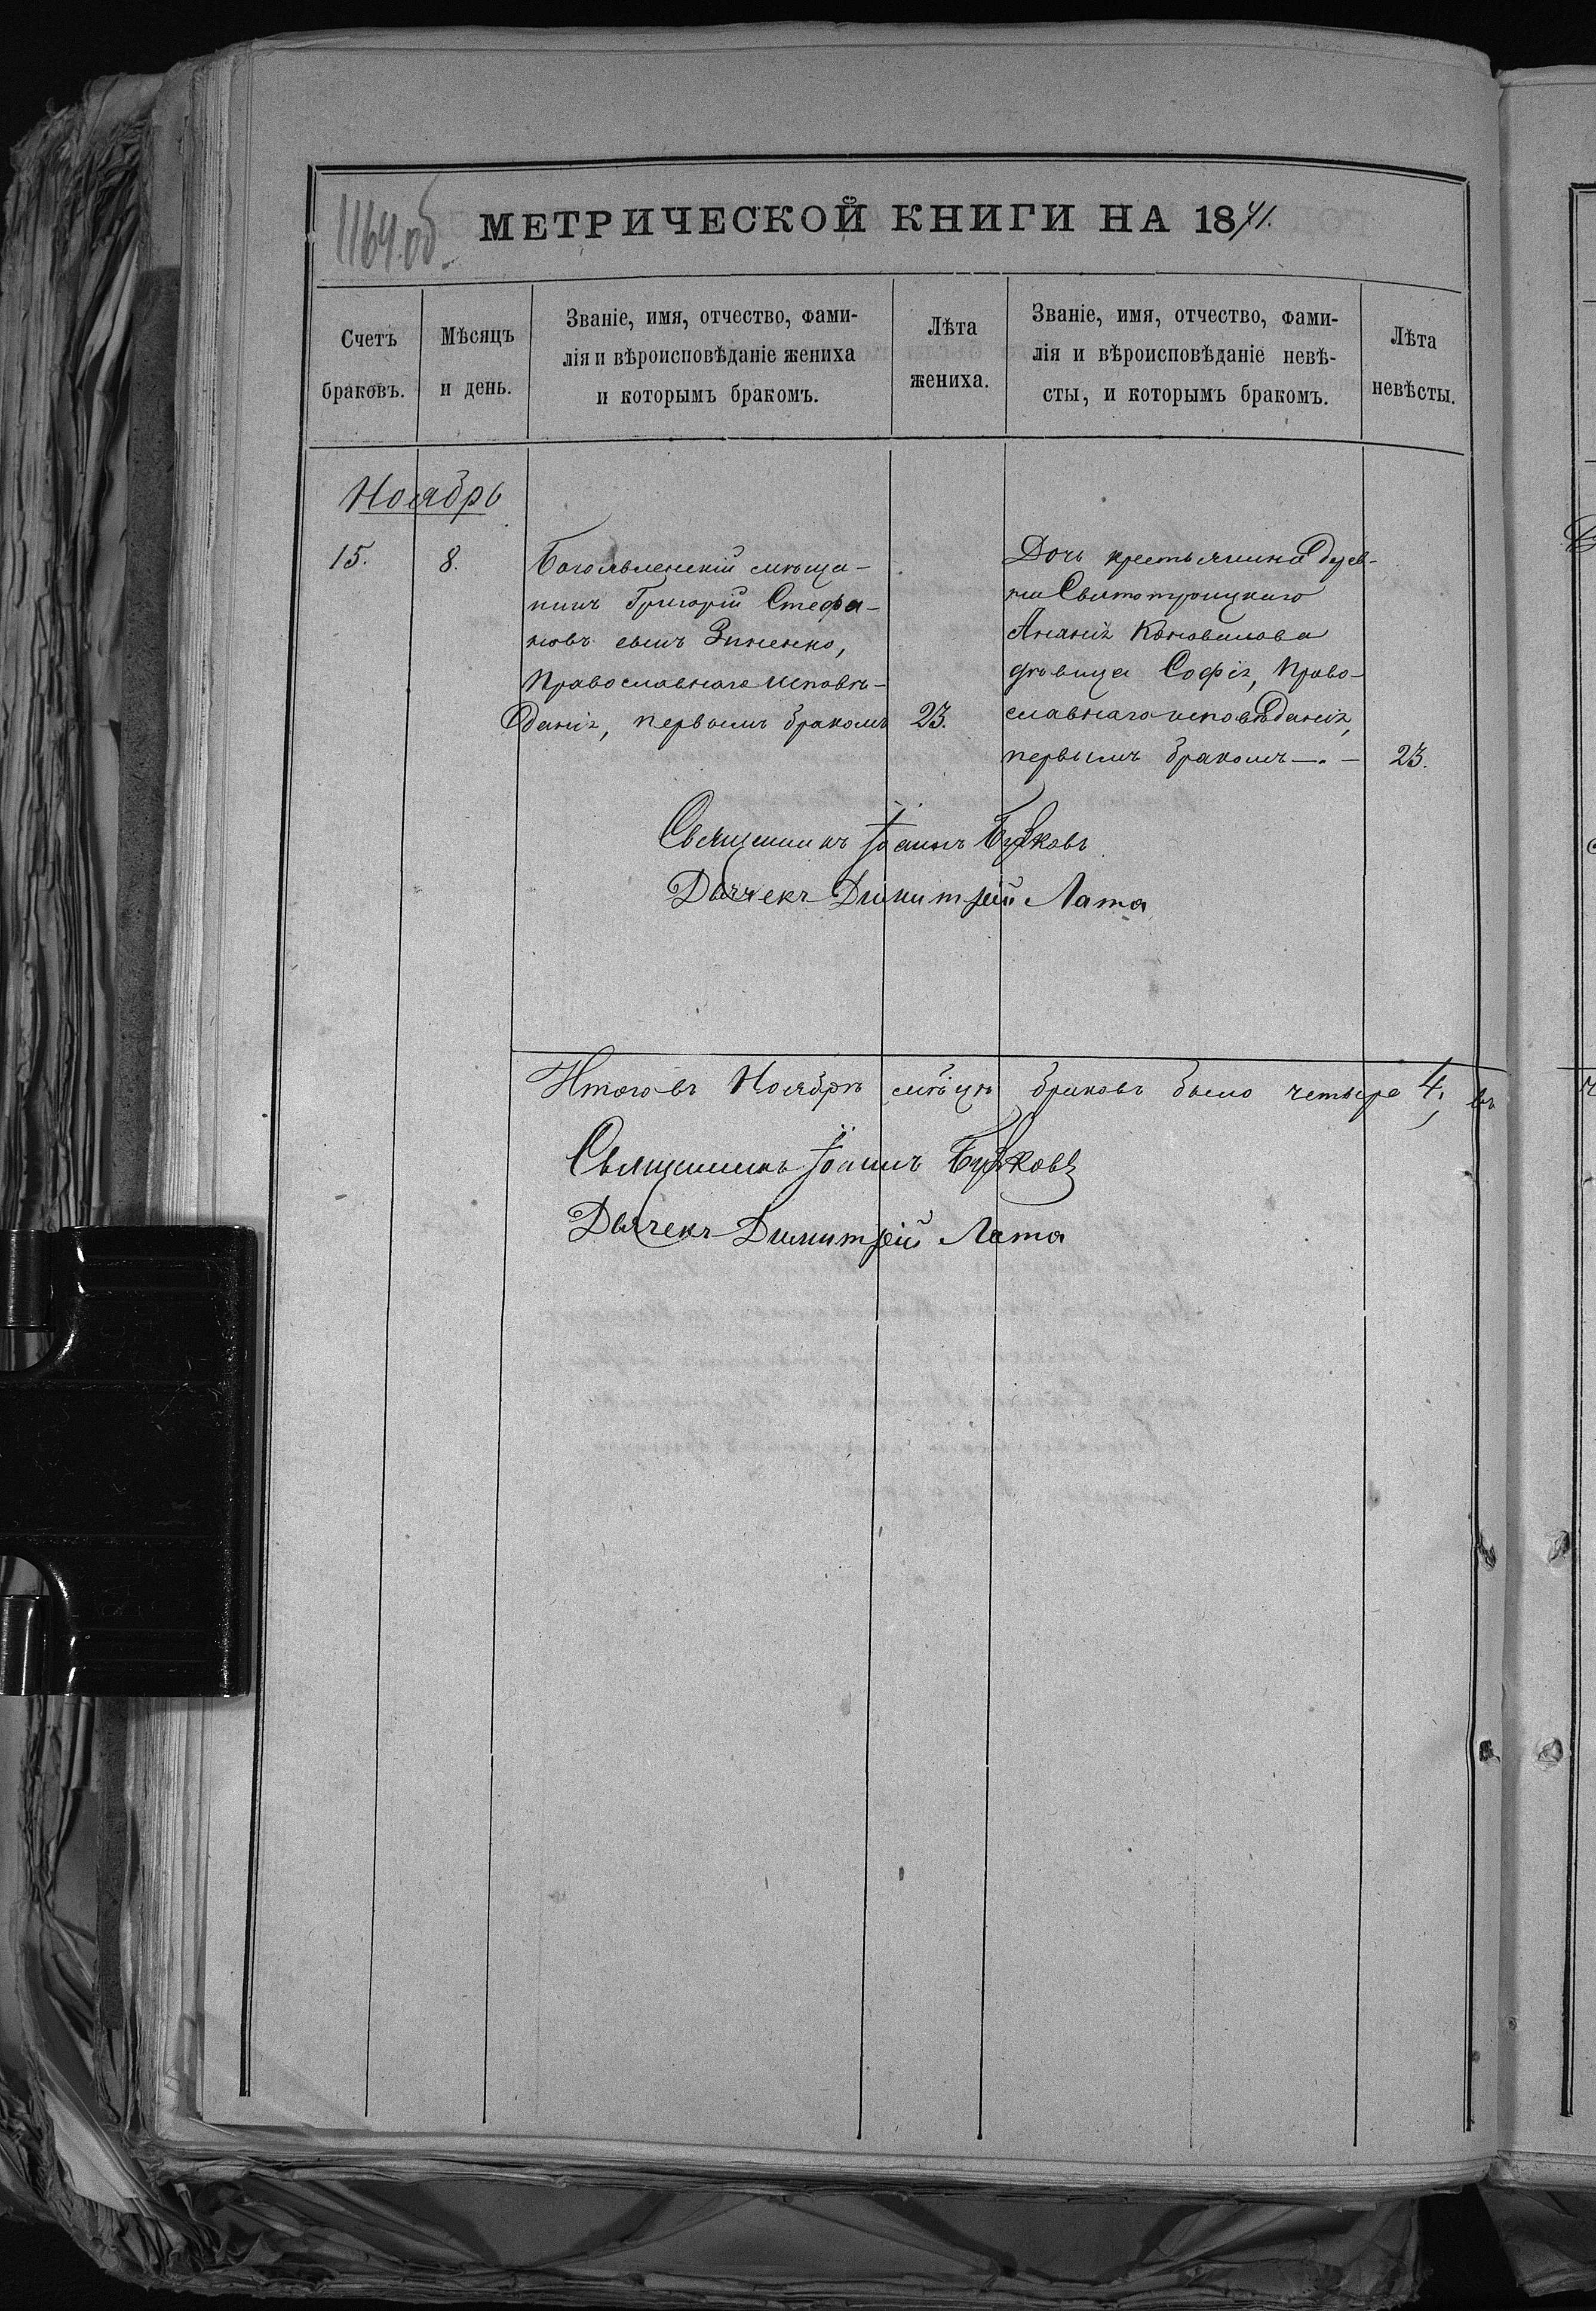 1164 об.
МЕТРИЧЕСКОЙ КНИГИ НА 1871.
Счетъ браковъ.
Мѣсяцъ и день.
Званіе, имя, отчество, фами-
лія и вѣроисповѣданіе жениха
и которымъ бракомъ.
Лѣта жениха.
Званіе, имя, отчество, фами-
лія и вѣроисповѣданіе невѣ-
сты, и которымъ бракомъ.
Лѣта невѣсты.
Ноябрь
15.
8.
Богоявленскій мѣща-
нинъ Григорій Стефа-
новъ сынъ Зиненко,
Православнаго исповѣ-
данія, первымъ бракомъ
23.
Дочь крестьянина дерев-
ни Святотроицкаго
Ананія Коновалова
дѣвица Софія, Право-
славнаго исповѣданія,
первымъ бракомъ —. —
23.
Священникъ Іоаннъ
Дьячекъ Димитрій Лата
Итого въ Ноябрѣ мѣсяцѣ браковъ было четыре 4,
Священникъ Іоаннъ
Дьячекъ Димитрій Лата